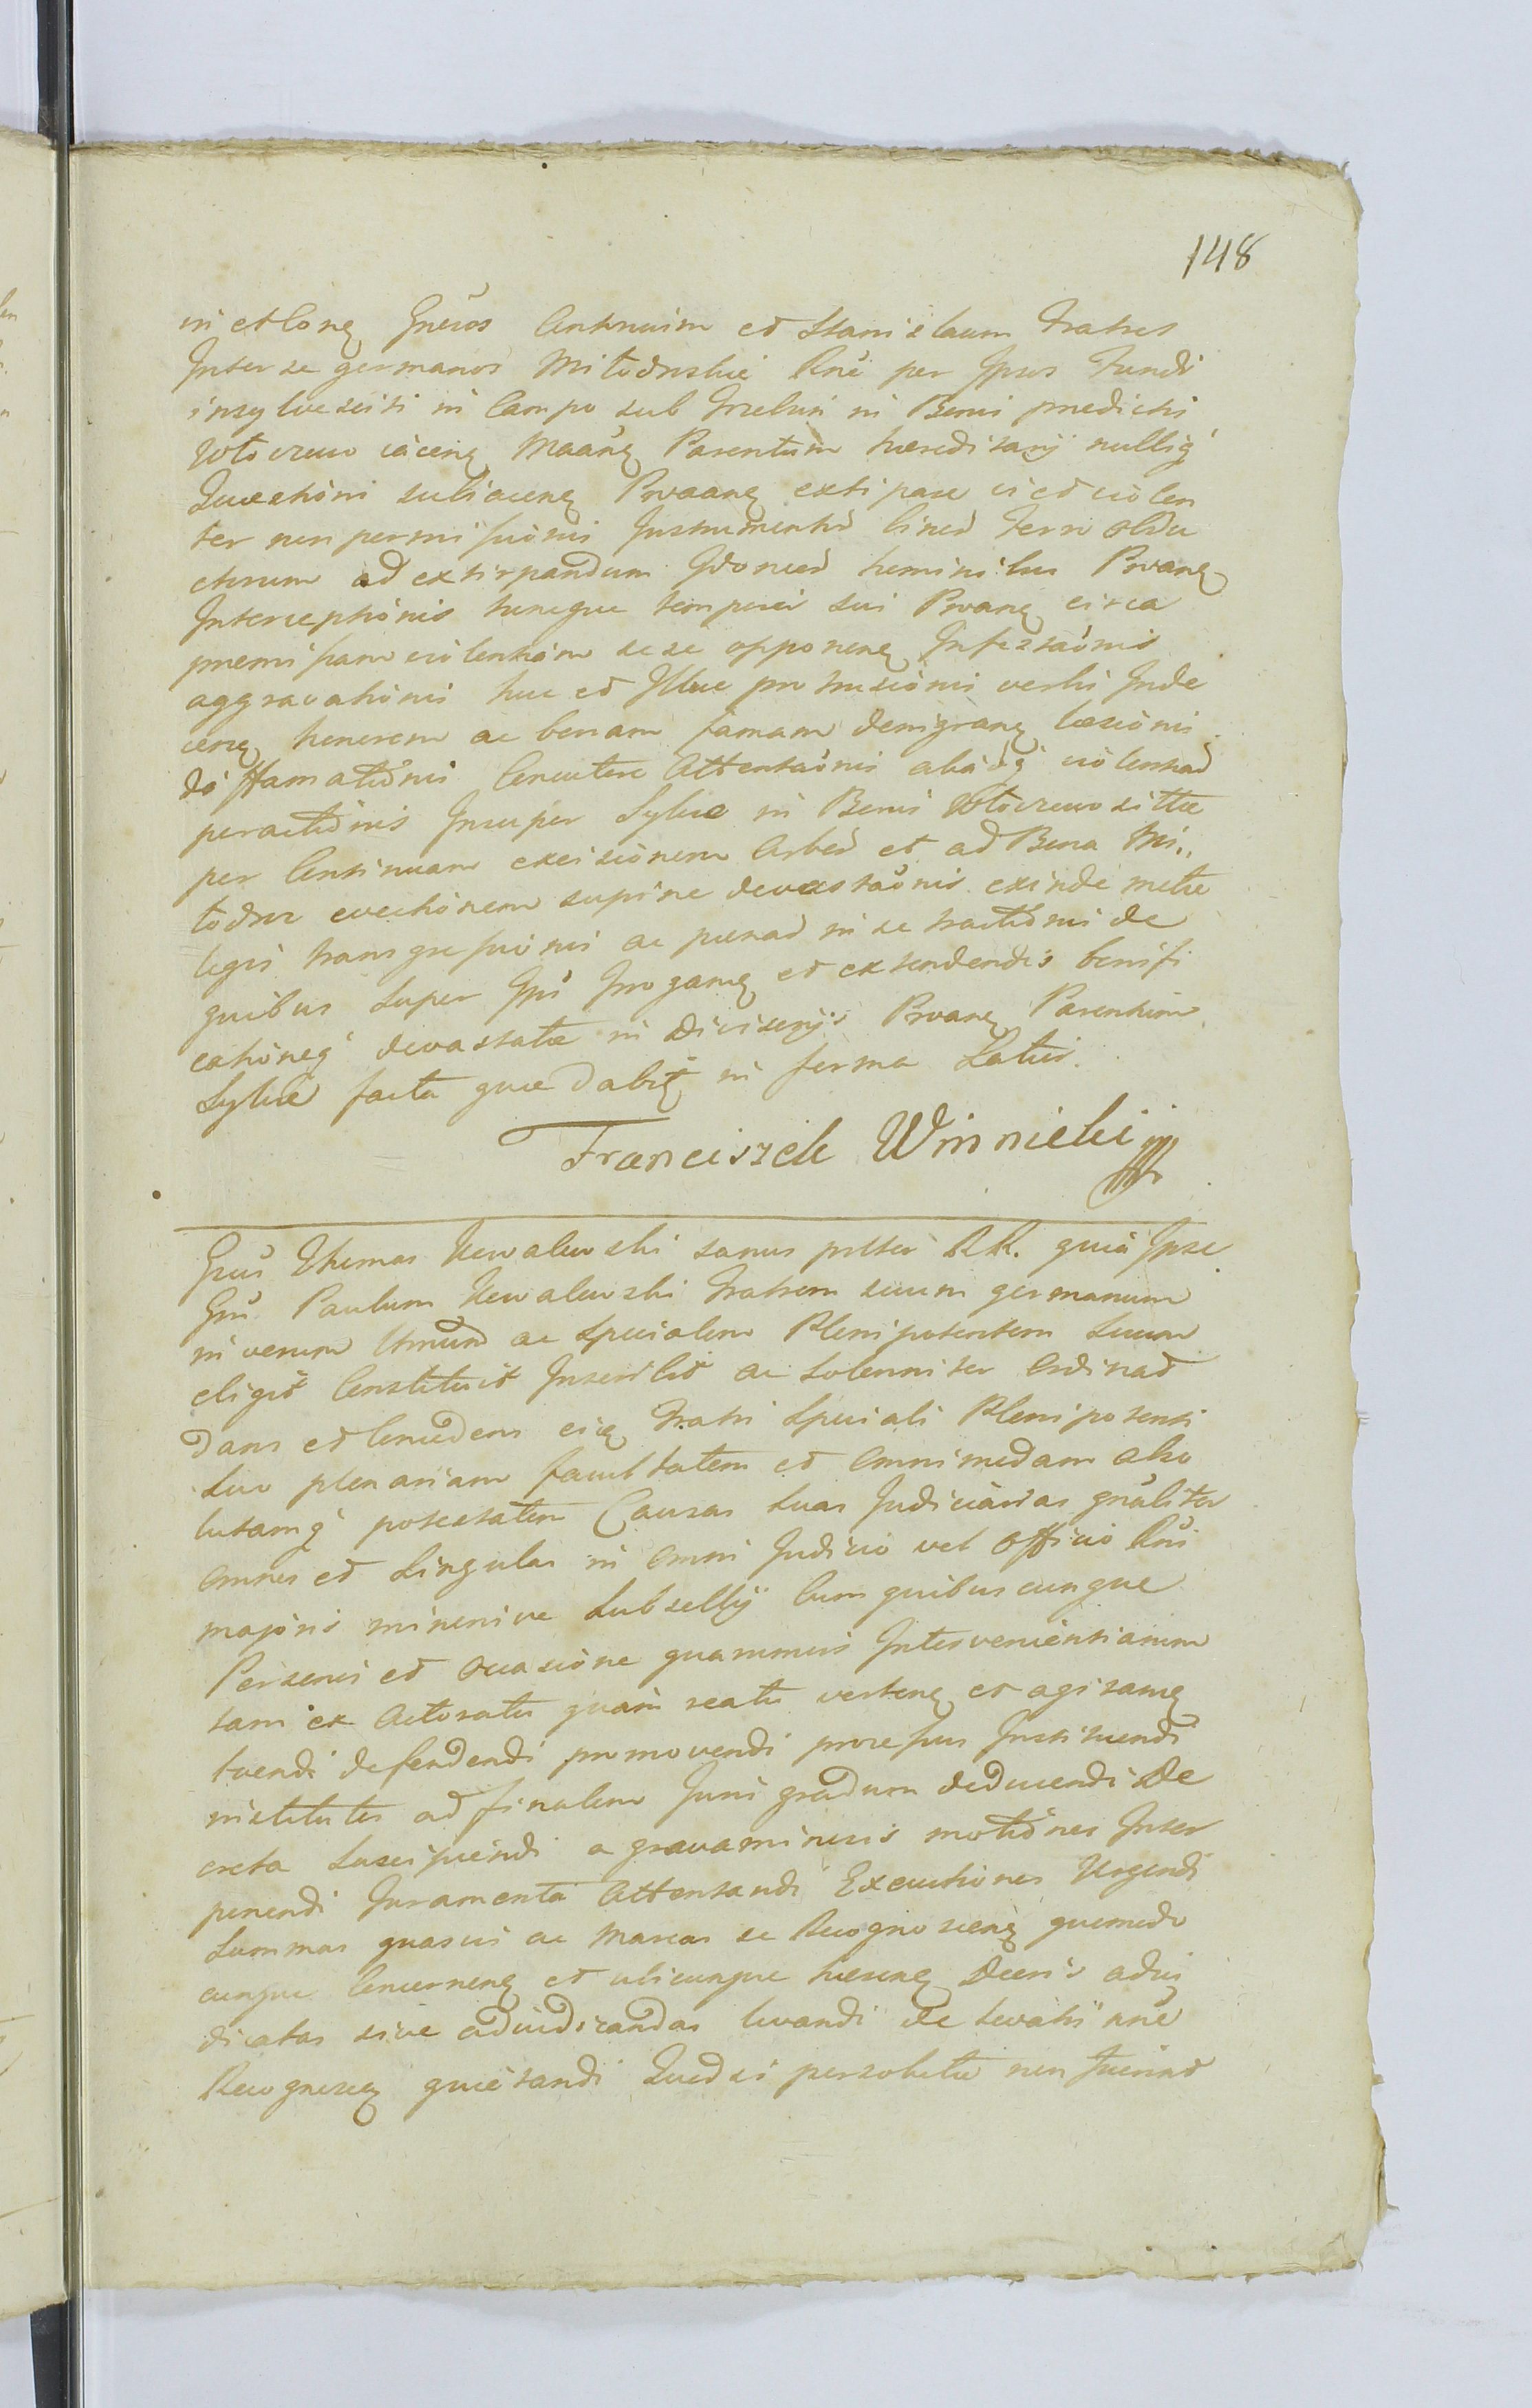 148
in et cong Gnros Antonium et Stanislaum Fratres
Inter se germanos Młodnskie Rne per Ipsos Fundi
insylvescisti in Campo sub in Bonis praedictis
jaceng Maang Parentum haereditarij nulliq
Quaestioni subjaceng Prvaang extipare vi et violen
ter non permissionis Instrumentor linear Ferro
ctorum ad extirpandum Idonear hominibus Prvang
Interceptionis hincque temporis sui Prvang circa
premissam violentiam sese opponeng Infestaonis
aggravationis huc et Illuc protrusionis verbis Inde
ceng honorem ac bonam famam denigrang laesionis
diffamationis Concutere Attentaonis aliaoq violentiar
peractionis Insuper Sylvae in Bonis sittae
per Continuam excisionem Arbor et ad Bona Mi,,
łodnr evectionem supine devastaonis exinde metae
legis transgressionis ac paenar in se tractionis de
quibus super Ipsis Irogang et extendendis bonifi
cationeq devastatae in Divisorijs Prvang Parentum
Sylvae facta quae dabit in forma Latius.
Franciszek Winnicki
Gnus Thomas Kowalewski sanus pttter RR. quia Ipse
Gm Paulum Kowalewski Fratrem suum germanum
in verum Ltmum ac Specialem Plenipotentem Suum
eligit Constituit Inscribit ac solenniter Ordinat
dans et Concedens eid Fratri Speciali Plenipotenti
Suo plenariam facultatem et Omnimodam abso
lutamq potestatem Causas Suas Judiciarias gnaliter
Omnes et Singulas in Omni Judicio vel Officio Rni
majoris minorisve Subsellij Cum quibuscunque
Personis et Occasione quarumvis Intervenientiarum
tam ex Actoratu quam reatu verteng et agitang
tuendi defendendi promovendi processus Instituendi
institutos ad finalem Juris gradum deducendi De
creta Suscipiendi a gravaminosis motiones Inter
ponendi Juramenta Attentandi Executiones Urgendi
Summas quasvis ac Marcas se Recognosceng quomodo
cunque Concerneng et ubicunque haereng Decris adiu
dicatas sive adiudicandas levandi de levatis nne
Recognoscg quietandi Quod si persolutae non fuerint